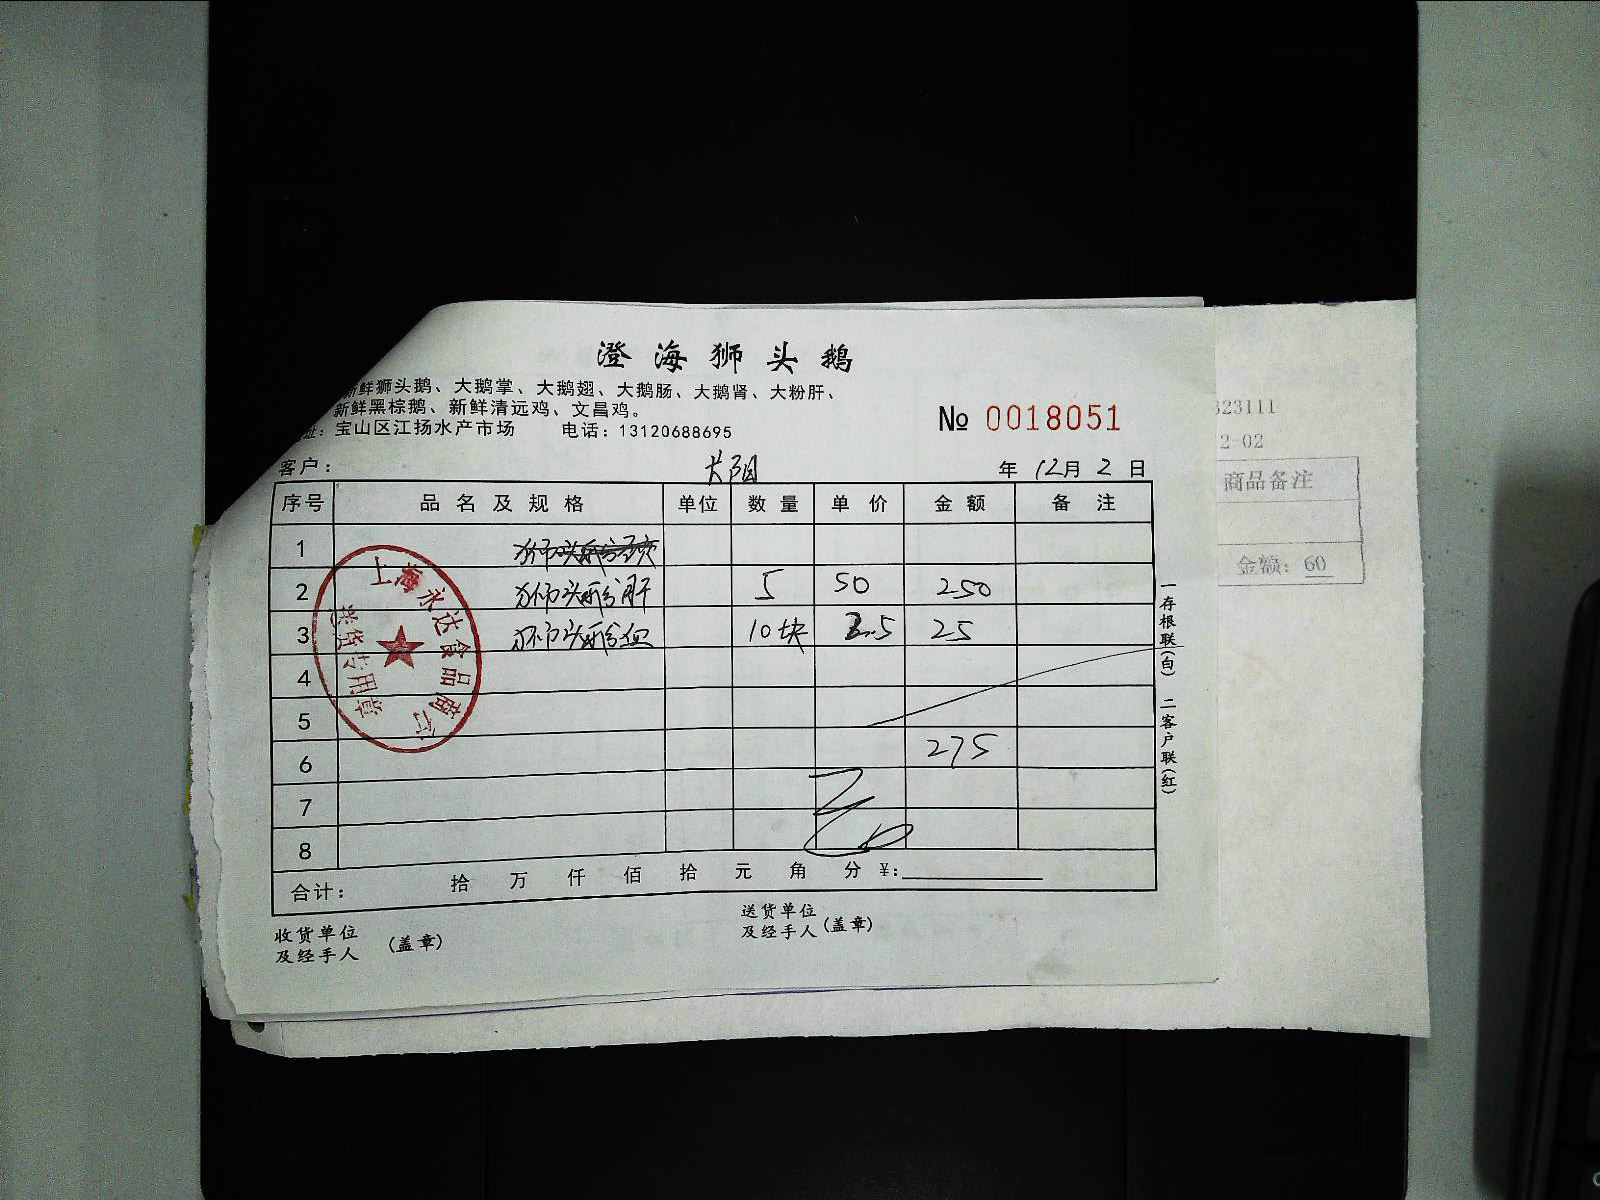 澄海狮头鹅
新鲜狮头鹅、大鹅掌、大鹅翅、大鹅肠、大鹅肾、大粉肝、
新鲜黑棕鹅、新鲜清远鸡、文昌鸡。
址：宝山区江扬水产市场 电话：13120688695
№ 0018051
客户： 年 12月 2 日
序号 品名及规格 单位 数量 单价 金额 备注
1
2 狮头鹅肝 5 50 250
3 狮头鹅血 10块 2.5 25
4
5
6 275
7
8
合计： 拾 万 仟 佰 拾 元 角 分 ¥:
收货单位
及经手人 (盖章)
送货单位
及经手人 (盖章)
一存根联(白) 二客户联(红)
上海永达食品商行
送货专用章
323111
2-02
商品备注
金额: 60